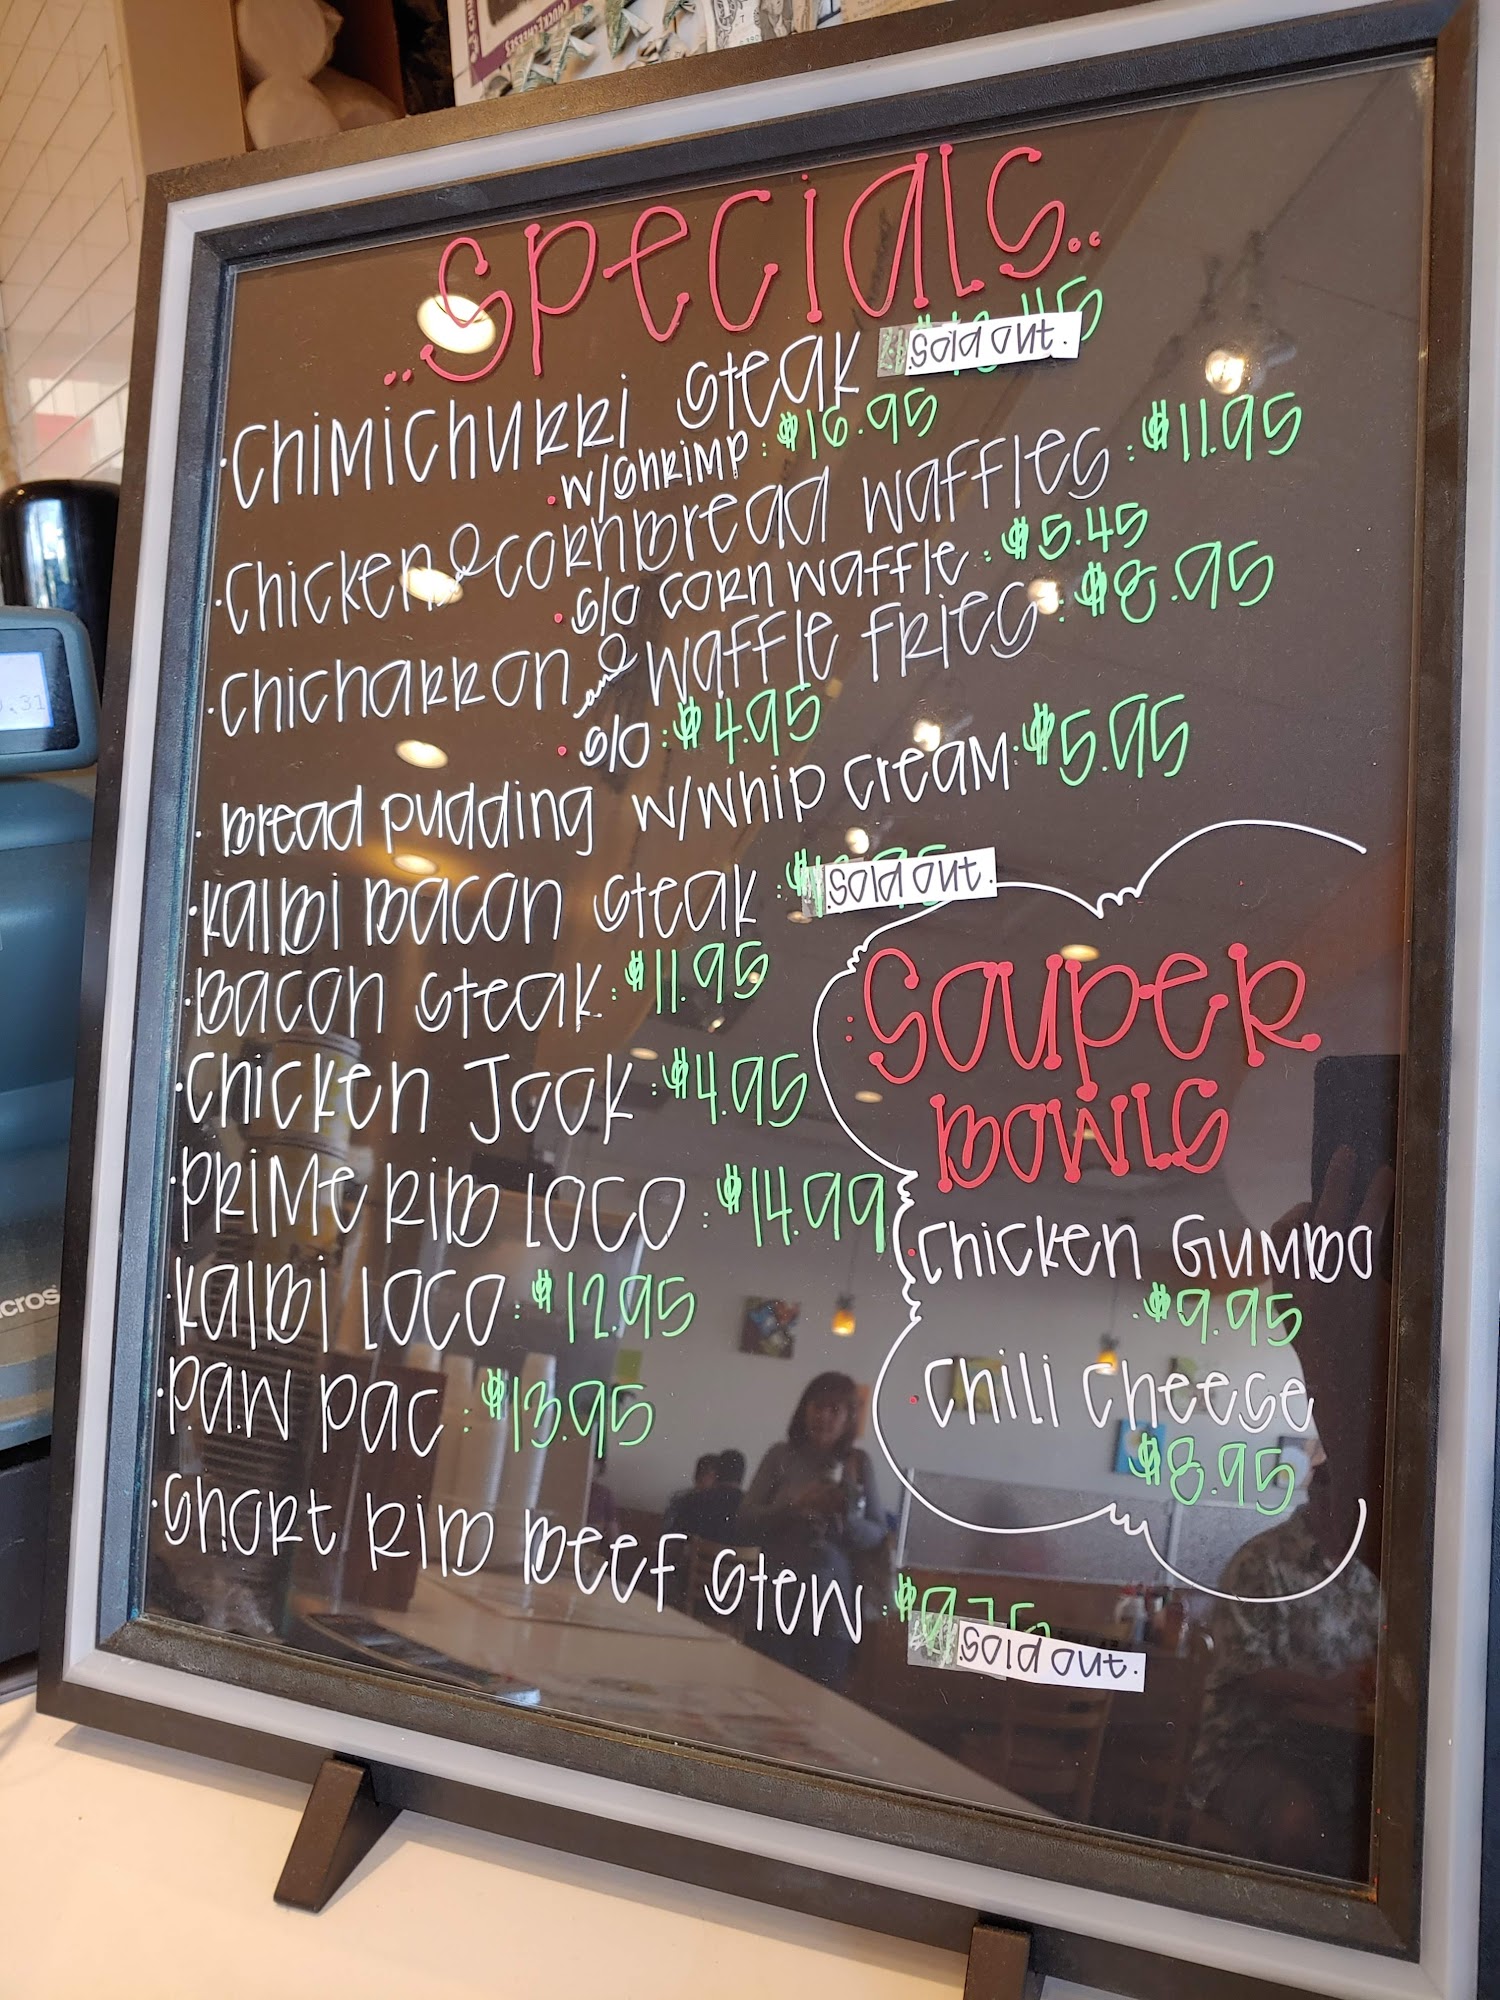 ..Specials..
·Chimichurri Steak Sold out.
·w/Shrimp: $16.95
·Chicken & Cornbread Waffles: $11.95
·S/O Corn Waffle: $5.45
·Chicharron and Waffle Fries: $8.95
·S/O: $4.95
·Bread Pudding w/Whip Cream: $5.95
·Kalbi Bacon Steak: Sold out.
·Bacon Steak: $11.95
·Chicken Jook: $4.95
·Prime Rib Loco: $14.99
·Kalbi Loco: $12.95
·P.A.W Pac: $13.95
·Short Rib Beef Stew: Sold out.
:Souper
Bowls
·Chicken Gumbo
$9.95
·Chili Cheese
$8.95